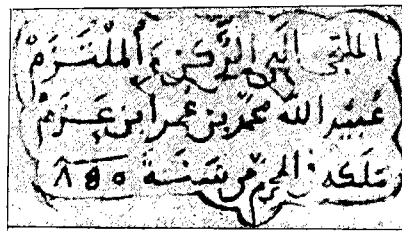 الملتجى الى الركن والملتزم
عبيد الله محمد بن عمر ابن عزم
ملكه في المحرم من سنة